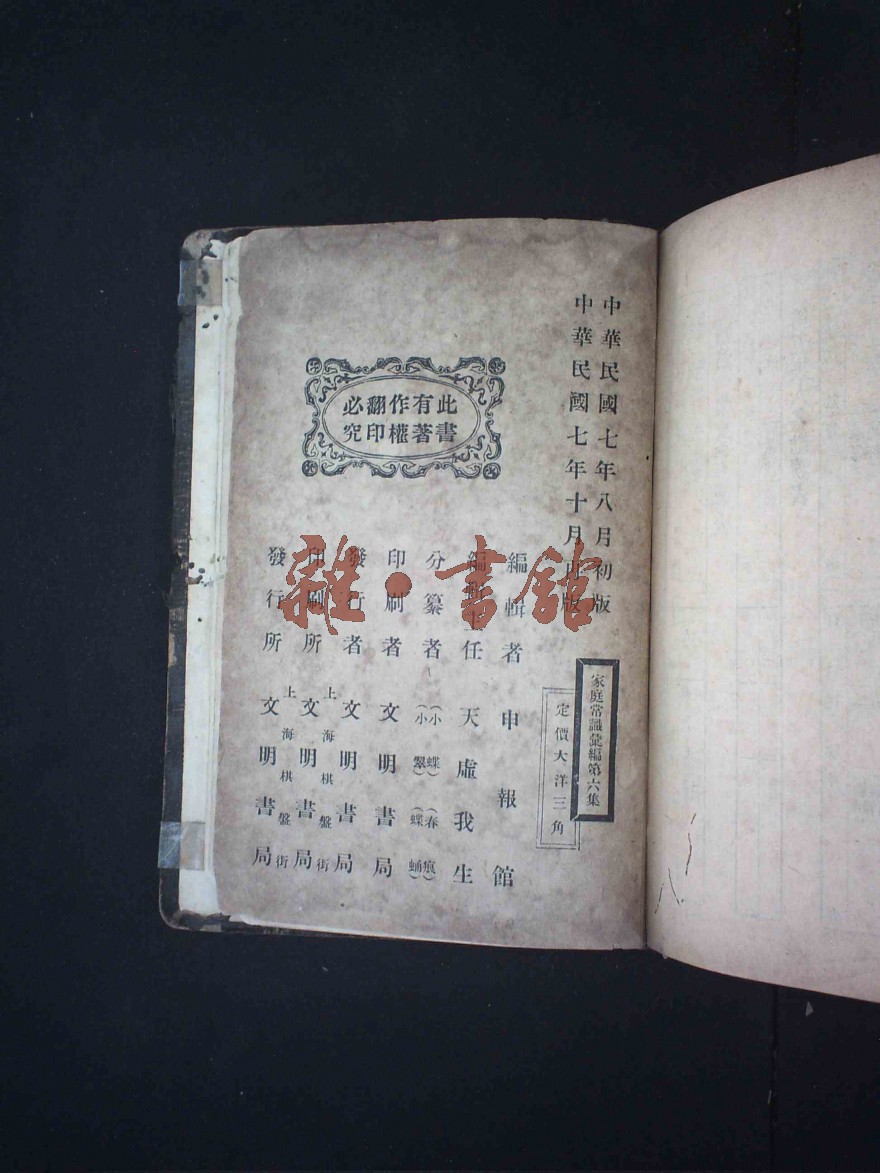 中華民國七年八月初版
中華民國七年十月再版
家庭常識彙編第六集
定價大洋三角
此書有著作權翻印必究
編輯者 申報館
編輯主任 天虛我生
分纂者 (小蝶) (春痕) (小翠) (蝶蛹)
印刷者 文明書局
發行者 文明書局
印刷所 上海棋盤街 文明書局
發行所 上海棋盤街 文明書局
雜·書館